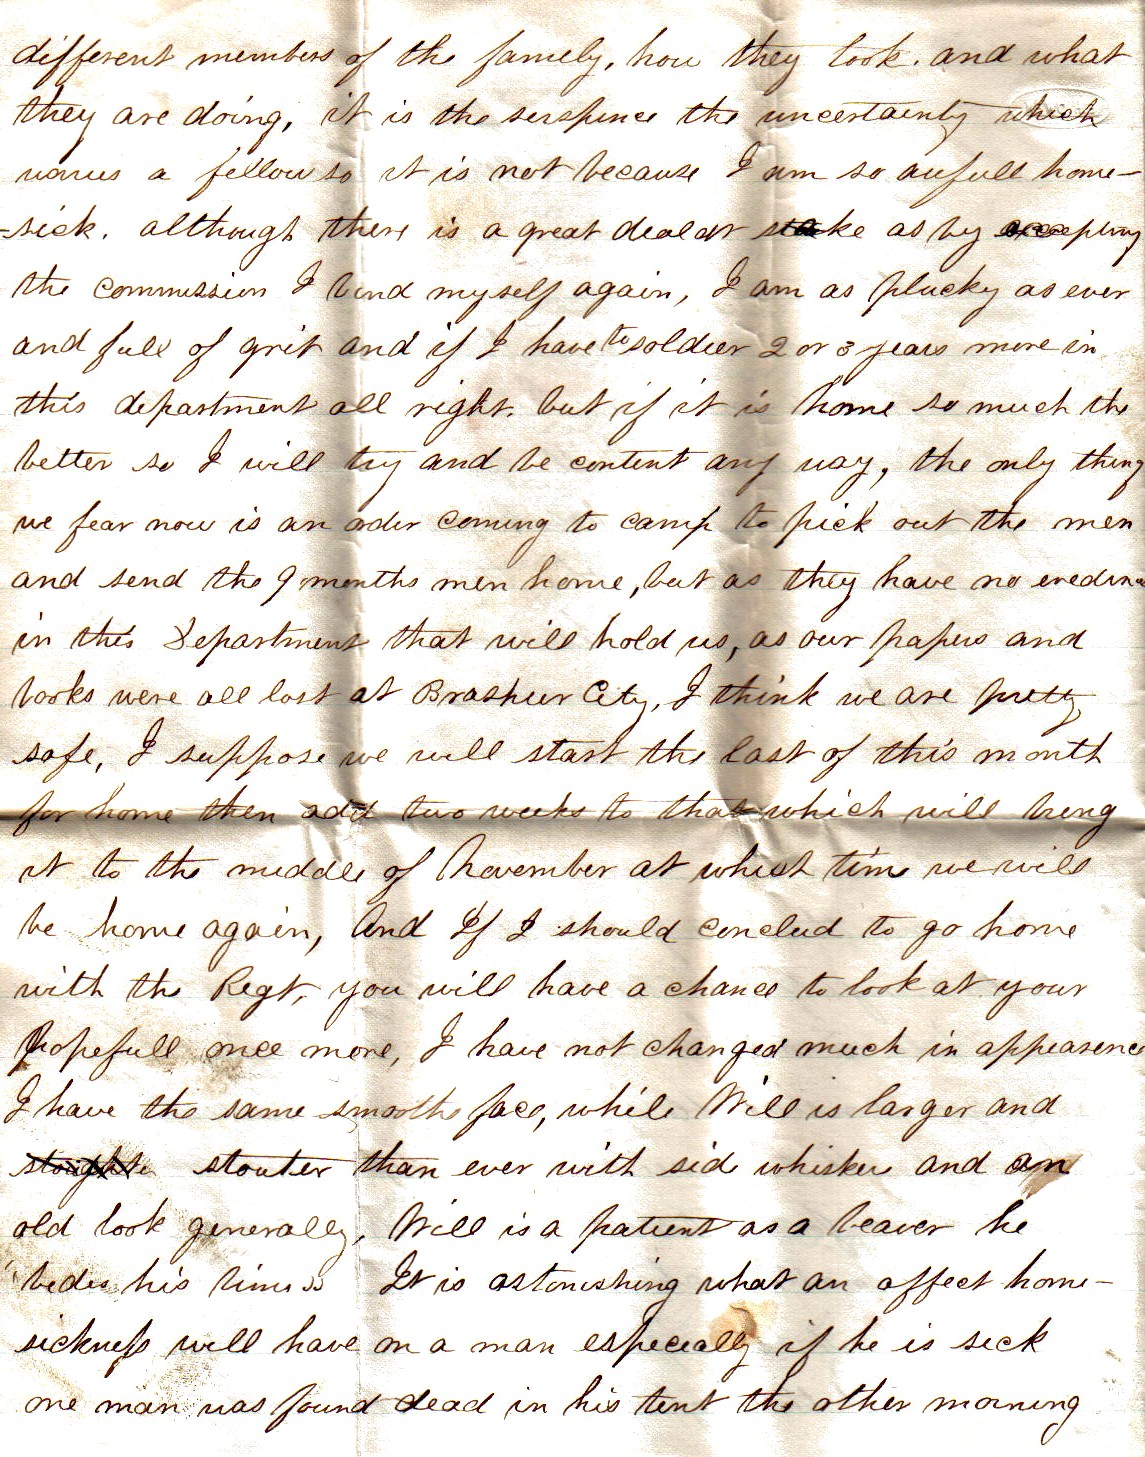 different members of the famely, how they look. and what
they are doing, it is the suspence the uncertainty which
worries a fellow so it is not because I am so aufull home-
-sick. although there is a great deal at stake as by accepting
the commission I bind myself again, I am as plucky as ever
and full of grit and if I have to soldier 2 or 3 years more in
this department all right. but if it is home so much the
better so I will try and be content any way, the only thing
we fear now is an order coming to camp to pick out the men
and send the 9 months men home, but as they have no evedence
in this Department that will hold us, as our papers and
books were all lost at Brashur City, I think we are pretty
safe, I suppose we will start the last of this month
for home then add two weeks to that which will bring
it to the middle of November at which time we will
be home again, And If I should conclud to go home
with the Regt, you will have a chance to look at your
hopefull once more, I have not changed much in appearence
I have the same smooth face, while Will is larger and
stouter than ever with side whisker and an
old look generally, Will is a patient as a beaver he
"bides his time" It is astonishing what an affect home-
sickness will have on a man especially if he is sick
one man was found dead in his tent the other morning